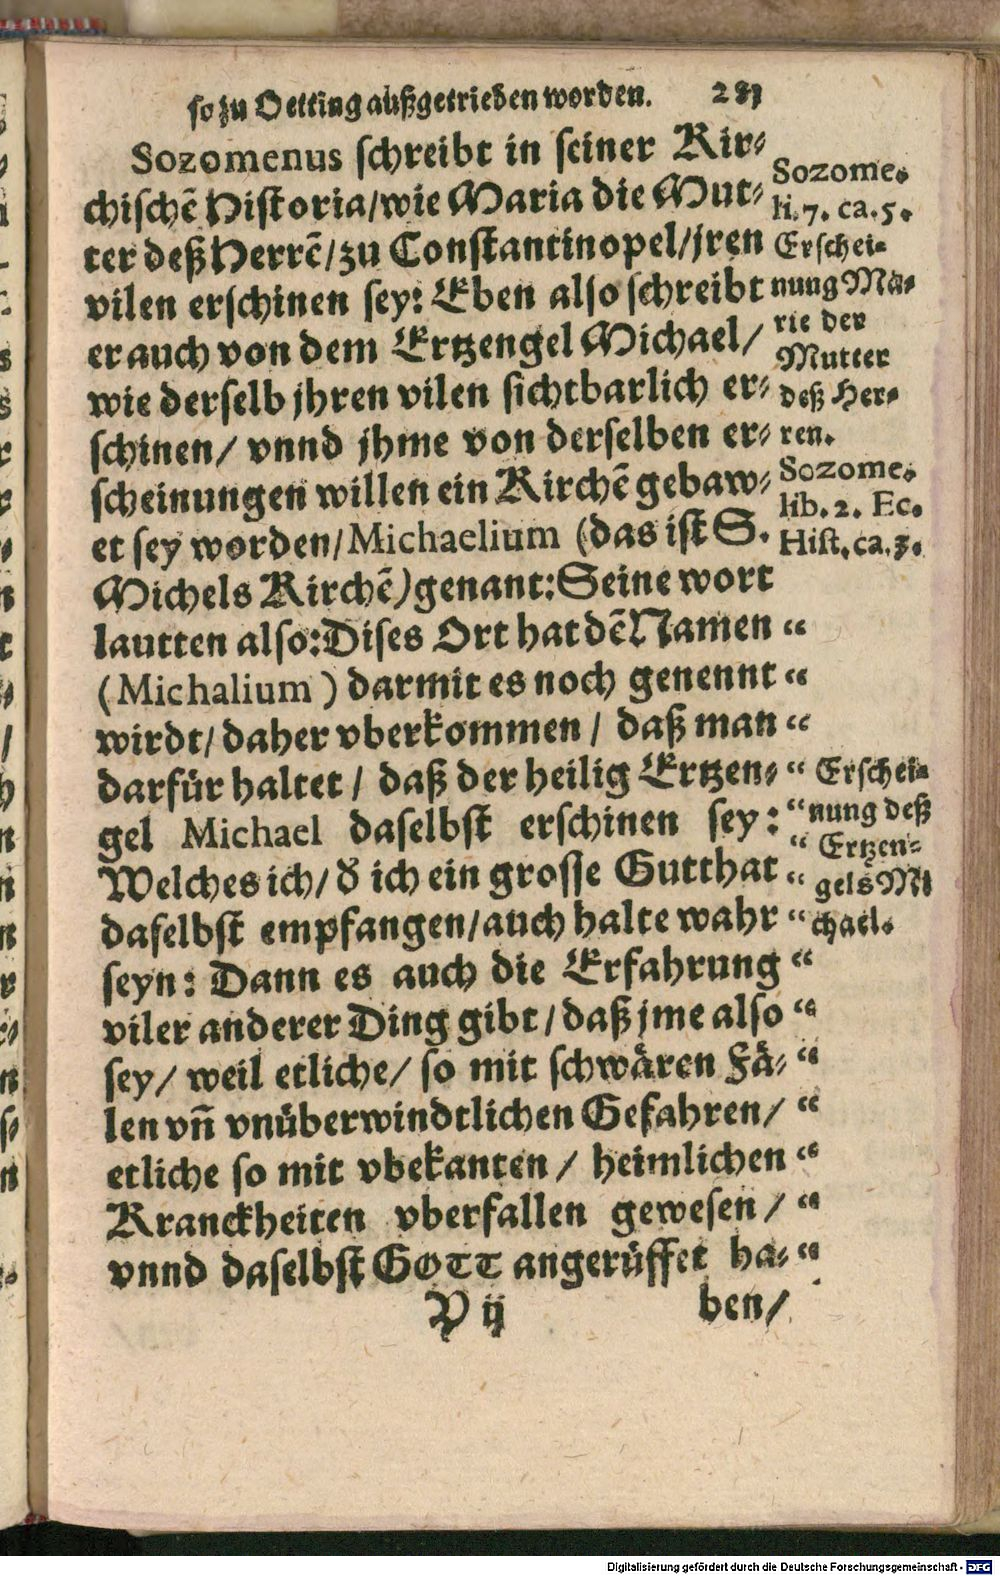 so zu Oetting außgetrieben worden.
Sozomenus schreibt in seiner Kir⸗
chischẽ Historia/wie Maria die Mut⸗
ter deß Herrẽ/zu Constantinopel/jren
vilen erschinen sey: Eben also schreibt
er auch von dem Ertzengel Michael/
wie derselb jhren vilen sichtbarlich er⸗
schinen/ vnnd jhme von derselben er⸗
scheinungen willen ein Kirchẽ gebaw⸗
et sey worden/Michaelium (das ist S.
Michels Kirchẽ) genant: Seine wort
lautten also: Dises Ort hat dẽ Namen “
(Michalium) darmit es noch genennt “
wirdt/ daher vberkommen / daß man “
darfür haltet / daß der heilig Ertzen⸗ “
gel Michael daselbst erschinen sey: “
Welches ich/ d̕ ich ein grosse Gutthat “
daselbst empfangen/auch halte wahr “
seyn: Dann es auch die Erfahrung “
viler anderer Ding gibt / daß jme also “
sey/ weil etliche/ so mit schwären Fä⸗ “
len vñ vnüberwindtlichen Gefahren/ “
etliche so mit vbekanten / heimlichen “
Kranckheiten vberfallen gewesen / “
vnnd daselbst GOTT angerüffet ha⸗ “
V ij ben/
Sozome.
li. 7. ca. 5.
Erschei⸗
nung Ma⸗
rie der
Mutter
deß Her⸗
ren.
Sozome.
lib. 2. Ec.
Hist. ca. 3.
Erschei⸗
nung deß
Ertzen⸗
gels Mi
chael.
Digitalisierung gefördert durch die Deutsche Forschungsgemeinschaft - DFG